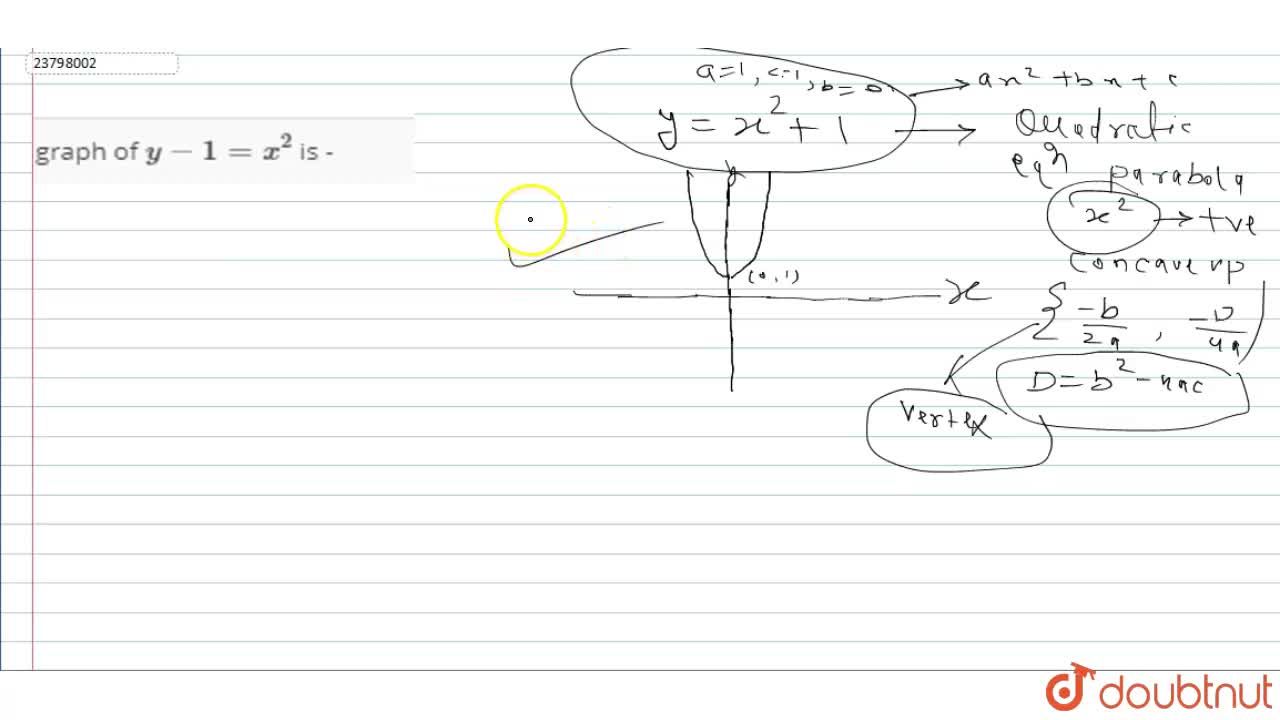 23798002
graph of y − 1 = x² is -
a=1, c=1, b=0
y = x² + 1
ax² + bx + c
Quadratic
eqⁿ
parabola
x² → +ve
concave up
y
(0,1)
x
{ -b/2a , -D/4a )
D = b² - 4ac
vertex
doubtnut